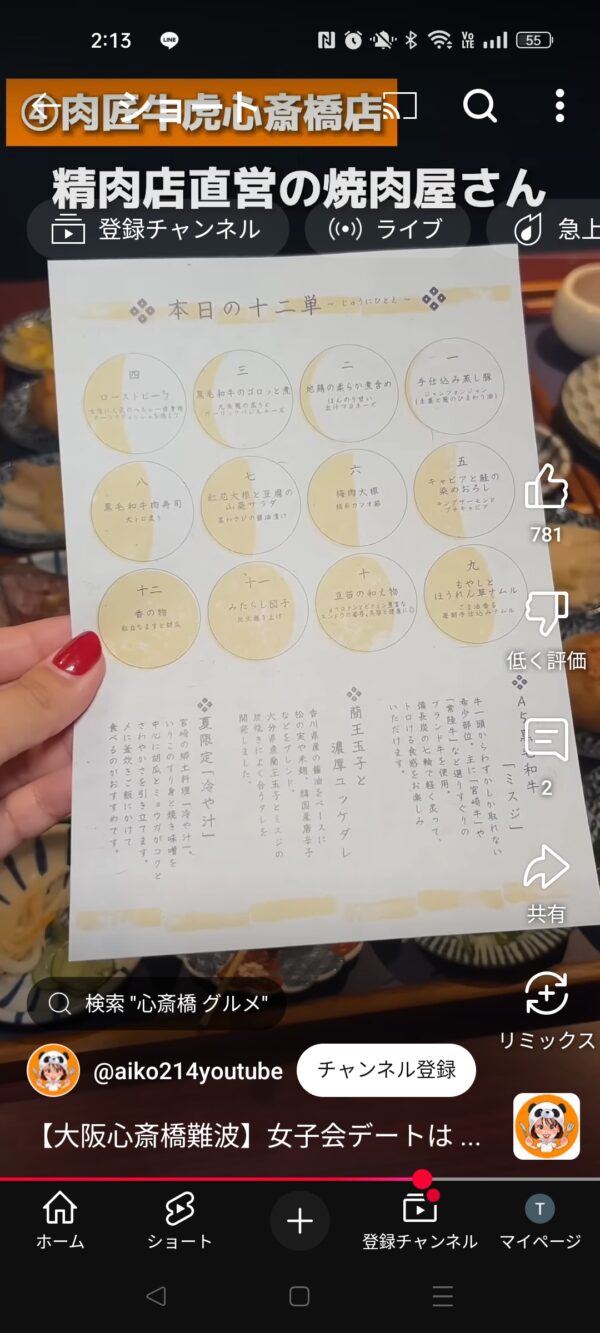 2:13
LINE
Vo LTE
55
④肉匠牛虎心斎橋店
ショート
精肉店直営の焼肉屋さん
登録チャンネル
ライブ
急上
本日の十二単 ~じゅうにひとえ~
一
手仕込み蒸し豚
ジャンツォンジャン
(生姜と葱のひまわり油)
二
地鶏の柔らか煮含め
ほんのり甘い
出汁マヨネーズ
三
黒毛和牛のゴロっと煮
四
ローストビーフ
五
キャビアと鮭の
染めおろし
キングサーモンと
プチキャビア
六
梅肉大根
枕崎カツオ節
七
紅花大根と豆腐の
山菜サラダ
茎わさびの醤油漬け
八
黒毛和牛肉寿司
大トロ炙り
九
もやしと
ほうれん草ナムル
ごま油香る
毎朝手仕込みナムル
十
豆苗の和え物
十一
みたらし団子
炭火織り上げ
十二
香の物
紅白なますと胡瓜
A5黒毛和牛
「ミスジ」
牛一頭からわずかしか取れない
希少部位。主に「宮崎牛」や
「常陸牛」など選りすぐりの
ブランド牛を使用。
備長炭の七輪で軽く炙って、
トロける食感をお楽しみ
いただけます。
蘭王玉子と
濃厚ユッケダレ
香川県産の醤油をベースに
松の実や米麹、韓国産唐辛子
などをブレンド。
大分県産蘭王玉子とミスジの
炭焼きによく合うタレを
開発しました。
夏限定「冷や汁」
宮崎の郷土料理「冷や汁」。
いりこのすり身と焼き味噌を
中心に胡瓜とミョウガがコクと
さわやかさを引き立てます。
〆に釜炊きご飯にかけて
食べるのがおすすめです。
781
低く評価
2
共有
リミックス
検索 "心斎橋 グルメ"
@aiko214youtube
チャンネル登録
【大阪心斎橋難波】女子会デートは ...
ホーム
ショート
登録チャンネル
T
マイページ